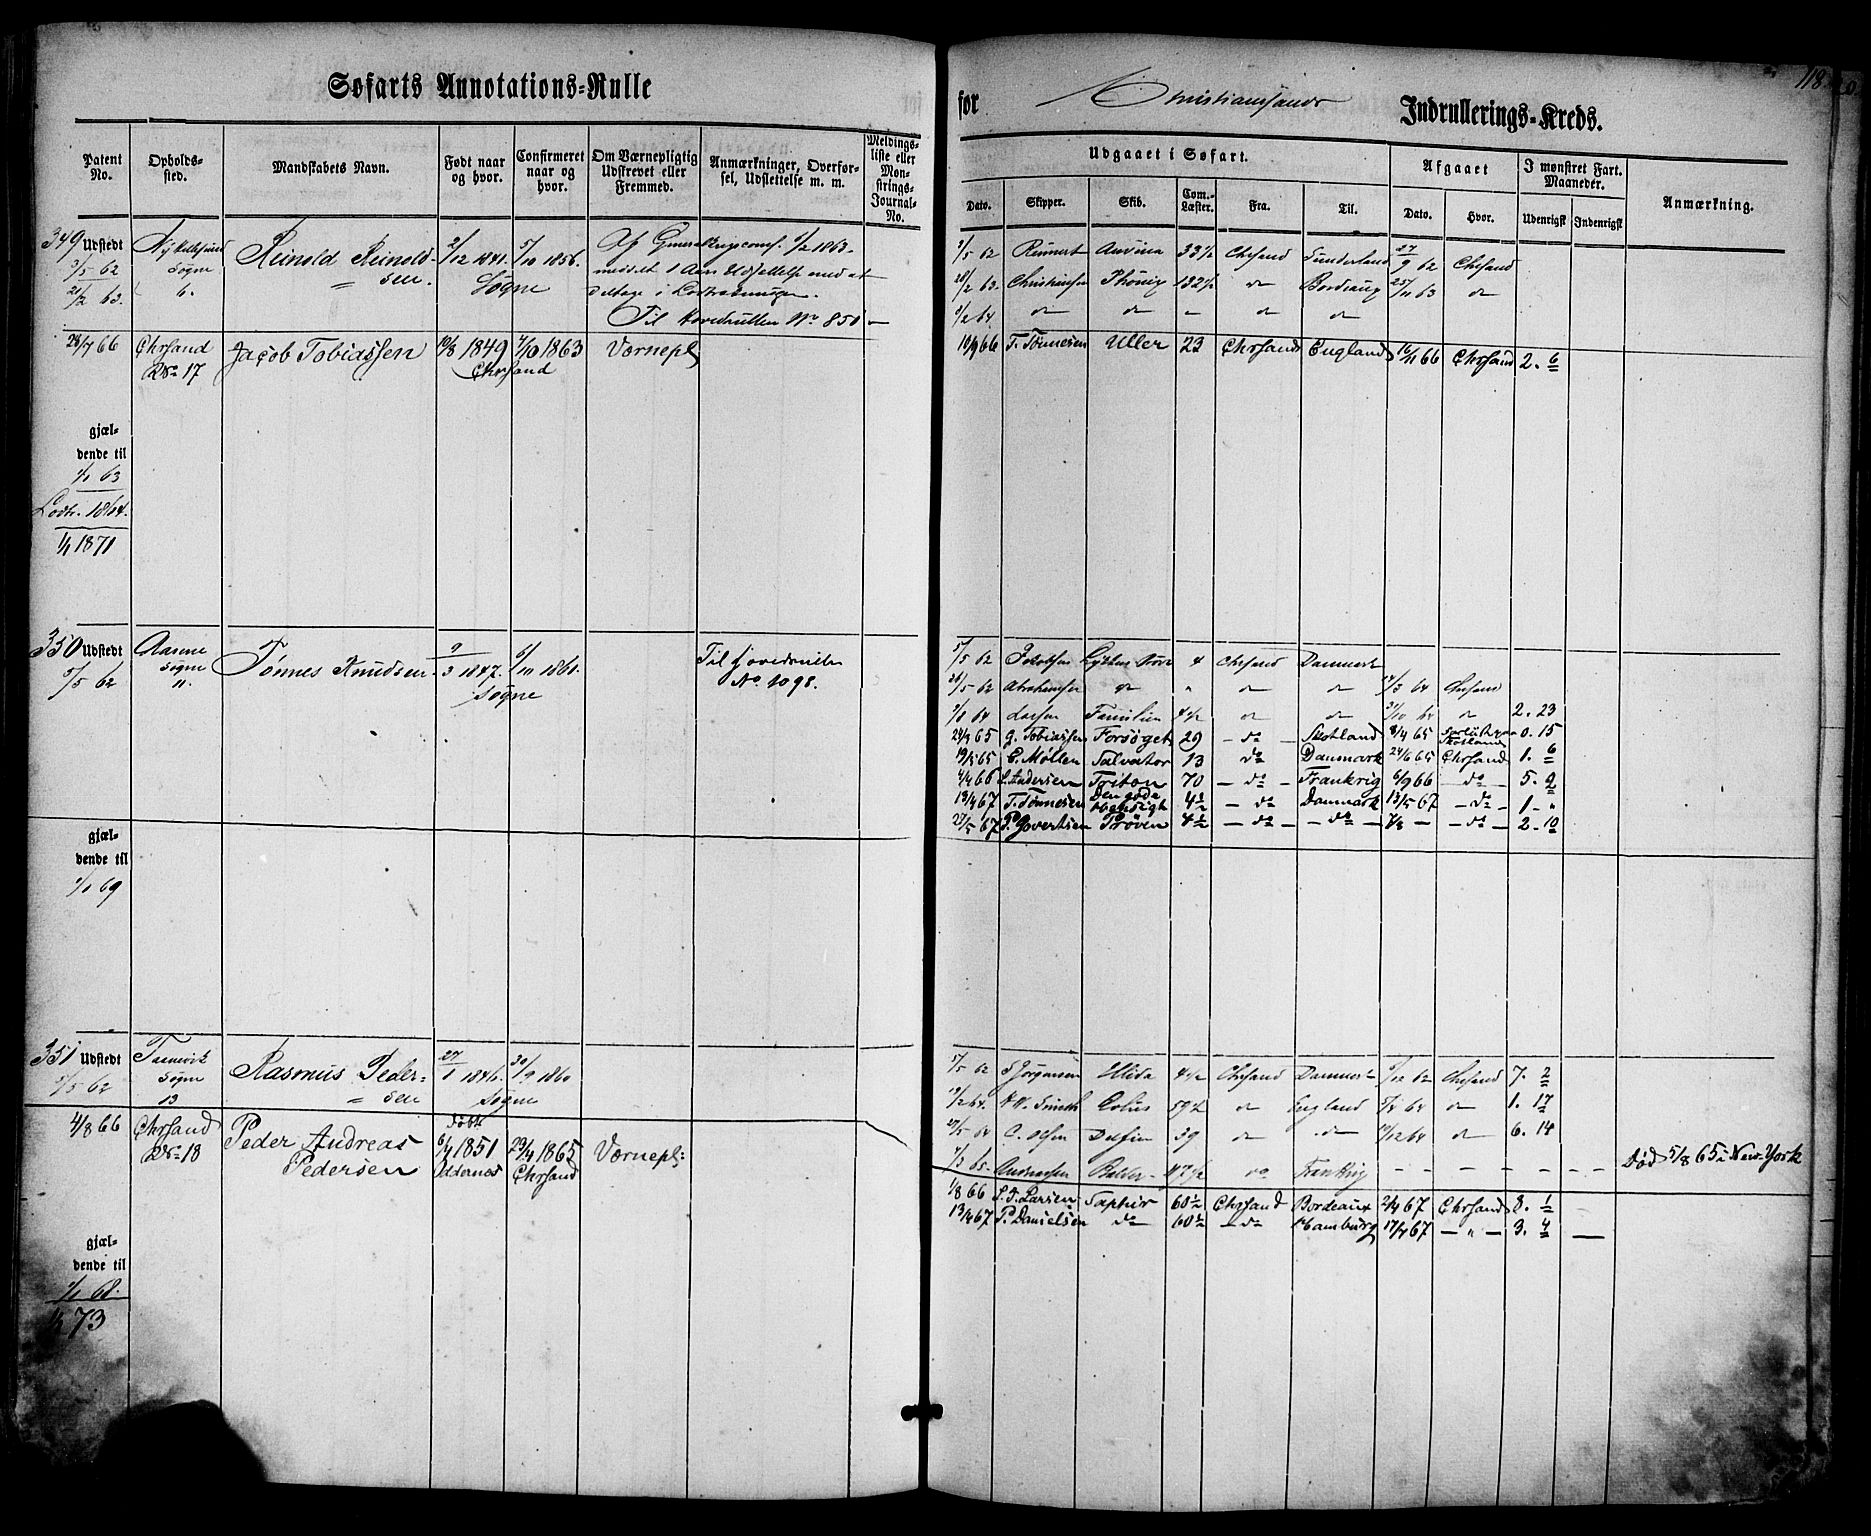 118
Søfarts Annotations=Rulle
for Christianssands Indrullerings=Kreds.
Patent No. Opholds-sted. Mandskabets Navn. Født naar og hvor. Confirmeret naar og hvor. Om Værnepligtig Udskrevet eller Fremmed. Anmærkninger, Overførsel, Udslettelse m. m. Meldings-liste eller Mønstrings-Journal-No.
Udgaaet i Søfart. Afgaaet I mønstret Fart. Maaneder. Anmærkning.
Dato. Skipper. Skib. Com.-Læster. Fra. Til. Dato. Hvor. Udenrigsk Indenrigsk
349 Udstedt 3/5 62 21/2 63.
Ny Hellesund Søgne 6.
Reinold Reinold=sen.
2/12 1841. Søgne
5/10 1856.
Af Generalkrigscoms. 6/2 1863
meddelt 1 Aars Udsettelse med at
deltage i Lodtrækningen.
Til Hovedrullen No 851
3/5 62 Reinert Anvina 33½ Chrsand Sunderland 27/9 62 Chrsand
20/2 63. Christensen Phønix 132½ do Bordeaux 25/11 63 do
1/2 64. do do " do do
28/7 66 Chrsand No 17 Jacob Tobiassen 10/8 1849 Chrsand 4/10 1863 Værnepl
10/9 66 T. Tønnesen Uller 23 Chrsand England 16/11 66 Chrsand 2. 6
gjæl-
dende til
1/1 63
Lodtr. 1864.
1/1 1871
350 Udstedt 5/5 62
Aarene Søgne 11.
Tønnes Knudsen
9/3 1847. Søgne
6/10 1861.
Til hovedrullen No 1098.
5/5 62 Jakobsen 4 Chrsand Danmark
26/5 62 Abrahamsen do " do do 14/3 64 Chrsand
1/8 64 Larsen Familien 4½ do do 31/10 64 do 2. 23
24/3 65 G. Tobiassen Forsøget 29 - do - Skotland 8/4 65 Skotland 0. 15
19/5 65 C. Møllen Salvator 13 do Danmark 24/6 65 Chrsand 1. 6
4/4 66 S. Andersen Triton 70 - do - Frankrig 6/9 66 - do - 5. 2
13/4 67 T. Tønnesen Den gode Hensigt 4½ - do - Danmark 13/5 67 - do - 1 - "
27/5 67 P. Govertsen Prøven 4½ - do - - do - 7/8 - - do - 2 - 10
gjæl-
dende til
1/1 69
351 Udstedt 5/5 62
Søgne 13
Rasmus Peder=sen
27/1 1846. Søgne
30/9 1860
5/5 62 S Jørgensen Elida 4½ Chrsand Danmark 5/12 62 Chrsand 7. 2
19/2 64. Eolus 59½ do England 5/4 64 do 1. 17
27/5 64 C. Olsen Delfin 39 do do 11/12 64 do 6. 14
7/3 65. Andreassen Balder 47½ do Frankrig - - - - - - Død 5/8 65 i New York
4/8 66 Chrsand No 18 Peder Andreas Pedersen født 6/4 1851 Oddernes 23/4 1865 Chrsand Værnepl:
1/8 66 S. T. Larsen Saphir 60½ Chrsand Bordeaux 2/4 67 Chrsand 8. 1
13/4 67 P. Danielsen do 60½ - do - Hamburg 17/7 67 - " - 3. 4 -
gjæl-
dende til
1/1 68.
1/1 73